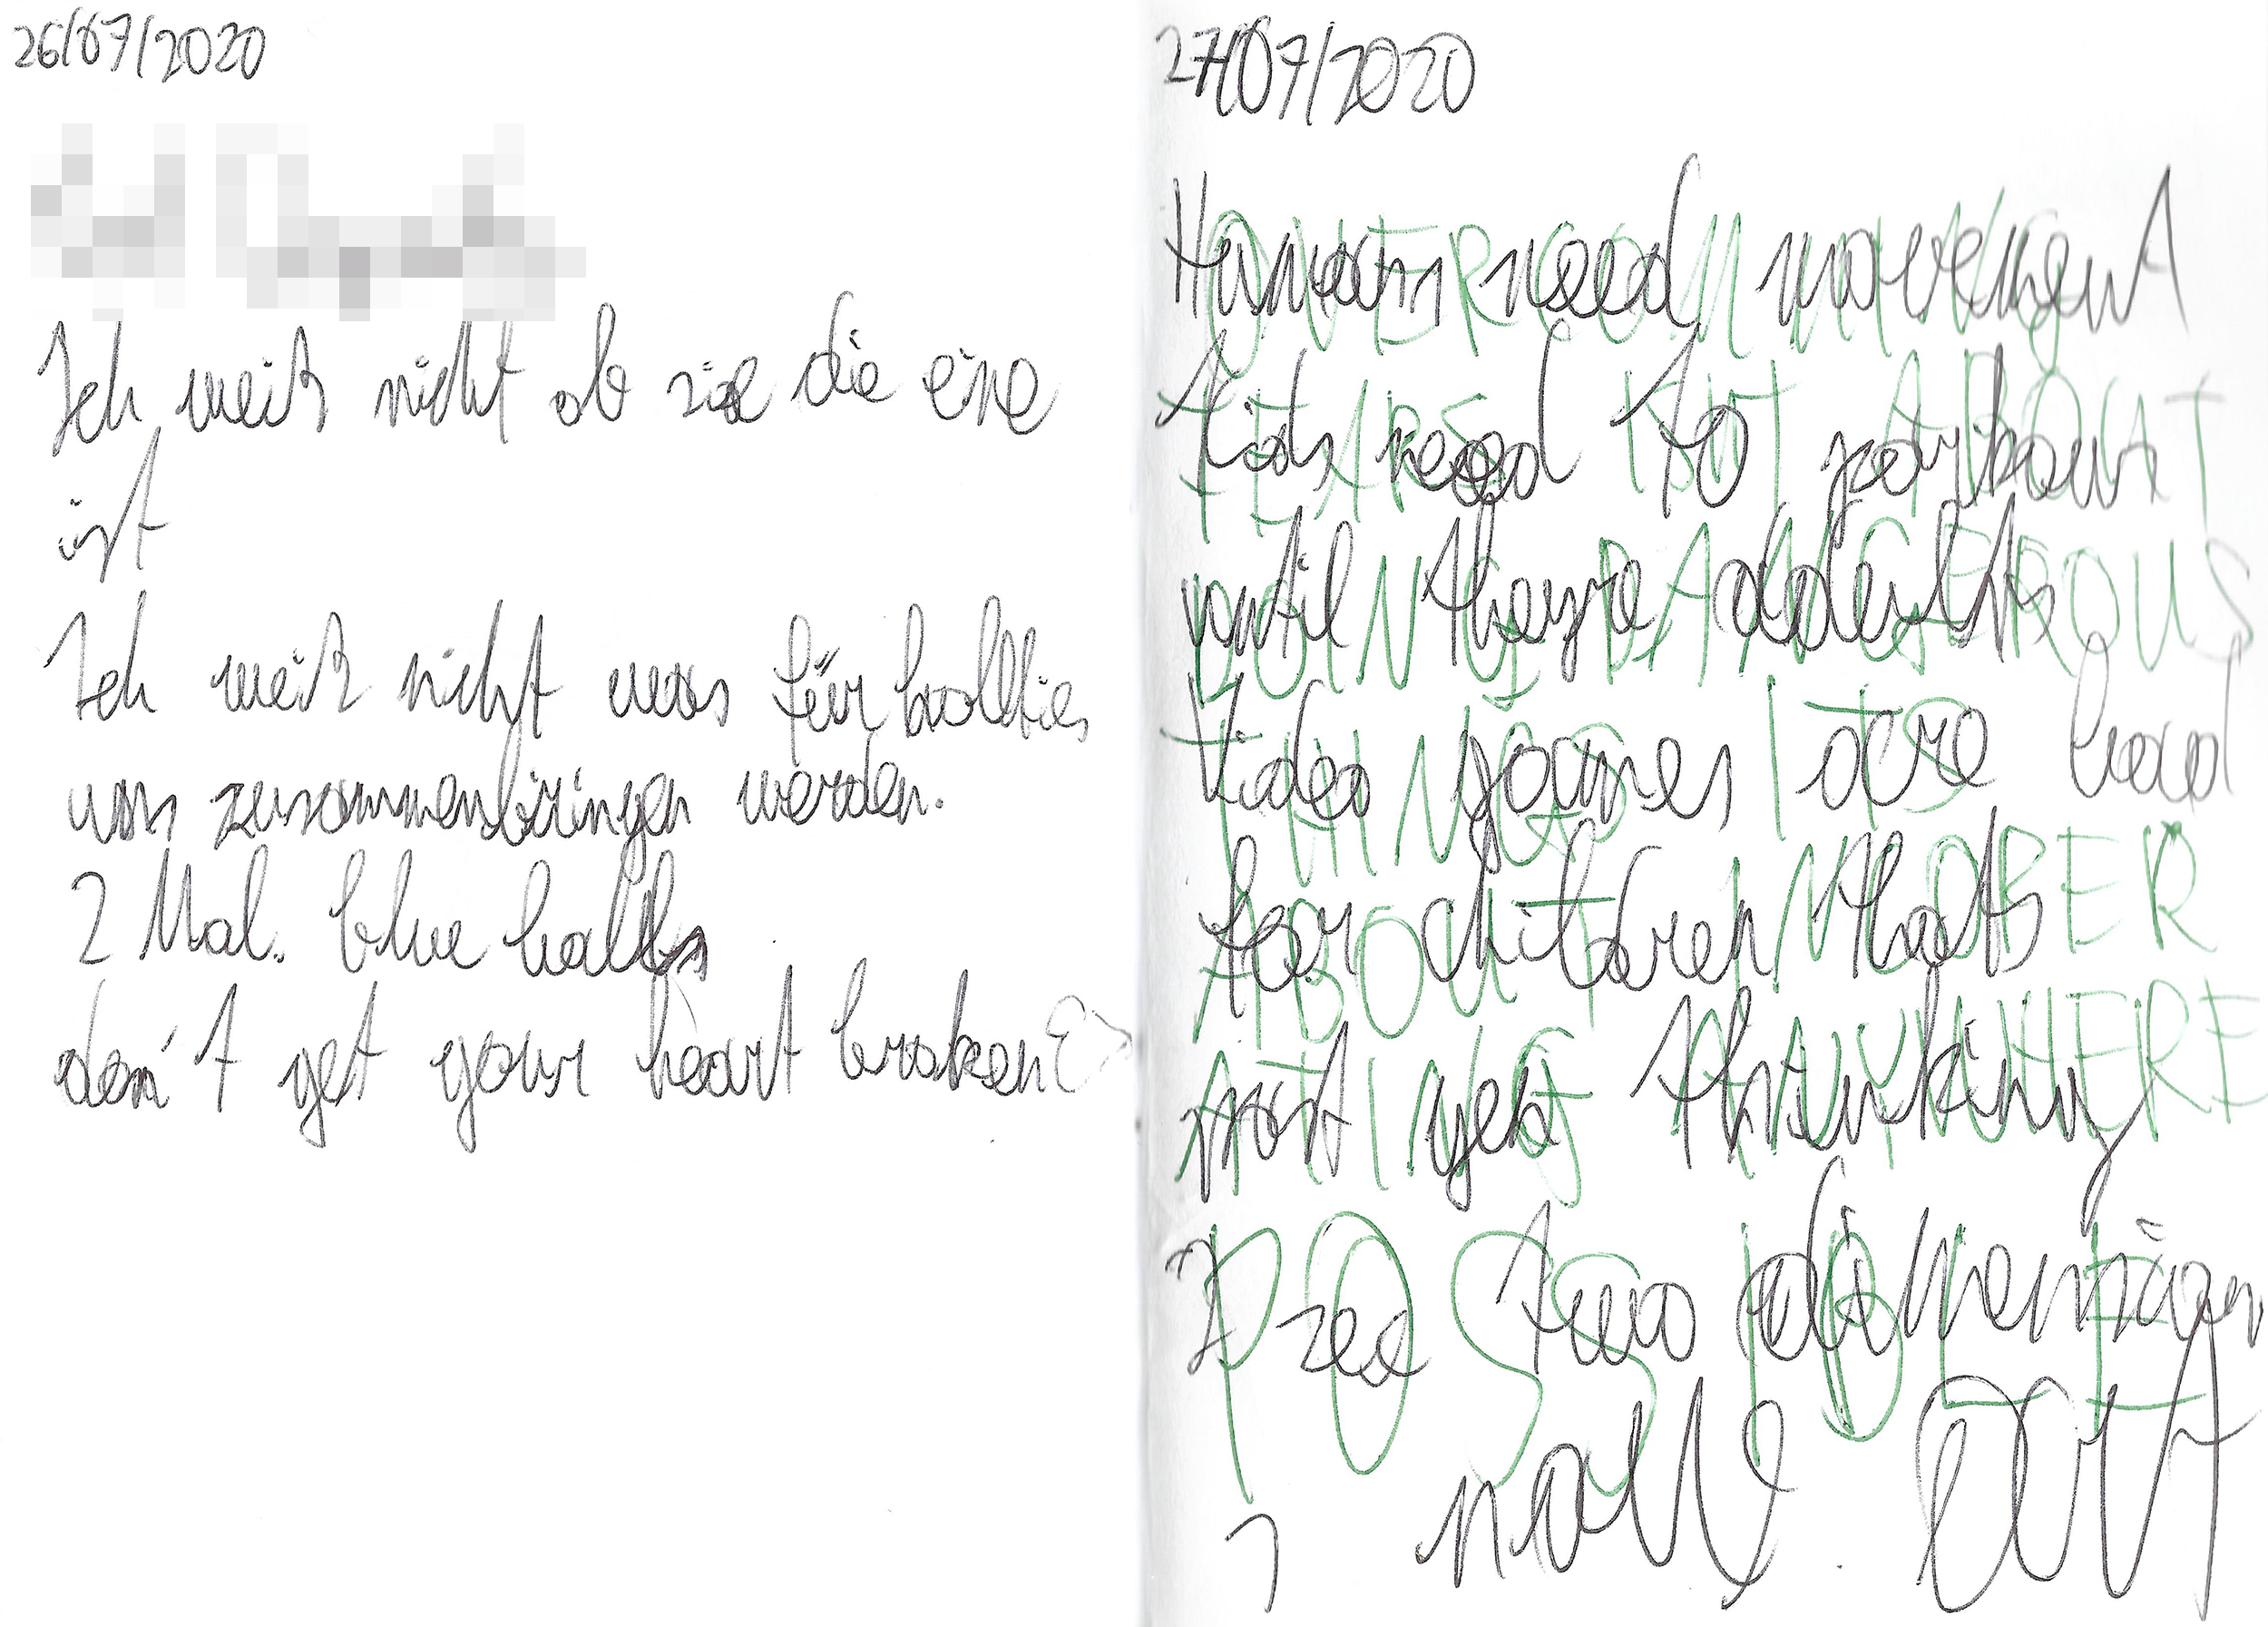 26/07/2020
Ich weiß nicht ob sie die eine
ist
Ich weiß nicht was für hallties
uns zusammenbringen werden.
2 Mal. blue balls
don't get your heart broken
27/07/2020
Humans need movement
Kids need to
until they're
Video games are bad
for children thats
not yet thinking
I see two dimension
OVERCOMING
FEARS ISNT ABOUT
DOING DANGEROUS
THINGS ITS
ABOUT
ACTING ANYWHERE
POSSIBLE